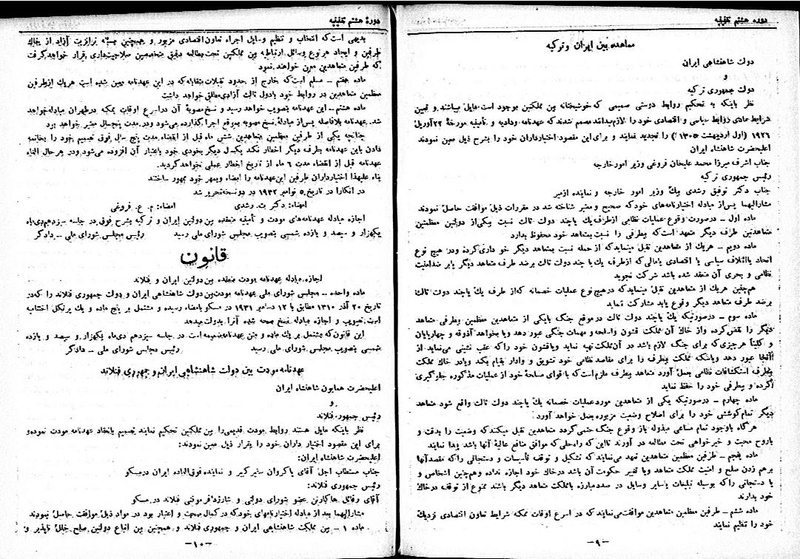 دوره هشتم تقنینیه
معاهده بین ایران و ترکیه
دولت شاهنشاهی ایران
و
دولت جمهوری ترکیه
نظر باینکه به تحکیم روابط دوستی صمیمی که خوشبختانه بین مملکتین موجود است مایل میباشند و تعیین
شرایط روابط سیاسی و اقتصادی خود را لازم میدانند مصمم شدند که عهدنامه ودادیه و تأمینیه مورخهٔ ۲۲ آوریل
۱۹۲۶ (اول اردیبهشت ۱۳۰۵) را تجدید نمایند و برای این مقصود اختیارداران خود را بشرح ذیل معین نمودند
اعلیحضرت شاهنشاه ایران
جناب اشرف میرزا محمد علیخان فروغی وزیر امور خارجه
رئیس جمهوری ترکیه
جناب دکتر توفیق رشدی بیك وزیر امور خارجه و نماینده ازمیر
مشارالیهما پس از مبادله اختیارنامه‌های خود که صحیح و معتبر شناخته شد در مقررات ذیل موافقت حاصل نمودند
ماده اول – درصورت وقوع عملیات نظامی ازطرف یك یا چند دولت ثالث نسبت بیکی از دولتین معظمتین
متعاهدتین طرف دیگر متعهد است که بیطرفی را نسبت بمتعاهد خود محفوظ بدارد
ماده دویم – هر یك از متعاهدین تقبل مینماید که از حمله نسبت بمتعاهد دیگر خود داری کرده و در هیچ نوع
اتحاد یا ائتلاف سیاسی یا اقتصادی یا مالی که از طرف یك یا چند دولت ثالث برضد طرف متعاهد دیگر یا بر ضد امنیت
نظامی و بحری آن منعقد شده باشد شرکت نجوید
هم‌چنین هر یك از متعاهدین تقبل مینماید که در هیچ نوع عملیات خصمانه که از طرف یك یا چند دولت ثالث
برضد طرف متعاهد دیگر وقوع یابد مشارکت ننماید
ماده سوم – درصورتیکه یك یا چند دولت ثالث در موقع جنگ با یکی از متعاهدین معظمین بیطرفی متعاهد
دیگر را نقض کرده و از خاك آن مملکت قشون و اسلحه و مهمات جنگی عبور دهد و یا بخواهد آذوقه و چهارپایان
و کلیهٔ هرچیزی که برای جنگ لازم باشد در آن مملکت تهیه نماید و یا قشون خود را که عقب نشینی می‌نماید از
آنجا عبور دهد و یا سکنه مملکت بیطرف را برای مقاصد نظامی خود تشویق و وادار بقیام بکند و یا در خاك مملکت
بیطرف استکشافات نظامی بعمل آورد متعاهد بیطرف ملزم است که با قوای مسلحهٔ خود از عملیات مذکوره جلوگیری
کرده و بیطرفی خود را حفظ نماید
ماده چهارم – درصورتیکه یکی از متعاهدین مورد عملیات خصمانه یك یا چند دولت ثالث واقع شود متعاهد
دیگر تمام کوشش خود را برای اصلاح وضعیت مزبوره بعمل خواهد آورد
هرگاه با وجود تمام مساعی مبذوله باز وقوع جنگ حتمی گردد متعاهدین تقبل میکنند که وضعیت را بدقت و
با روح محبت و خیرخواهی تحت مطالعه در آورند تا این که راه حلی که موافق منافع عالیهٔ آنها باشد پیدا نمایند
ماده پنجم – طرفین معظمین متعاهدین تعهد می‌نمایند که تشکیل و توقف تأسیسات و دستجاتی را که مقصد آنها
برهم زدن صلح و امنیت مملکت متعاهد و یا تغییر حکومت آن باشد در خاك خود اجازه نداده و همچنین اشخاص و
یا دستجاتی را که بوسیله تبلیغات یا سایر وسایل در صدد مبارزه با مملکت متعاهد دیگر باشند ممنوع از توقف در خاك
خود بدارند
ماده ششم – طرفین معظمین متعاهدین موافقت می‌نمایند که در اسرع اوقات ممکنه شرایط تعاون اقتصادی نزدیك
خود را تنظیم نمایند
–۹–
دوره هشتم تقنینیه
بدیهی است که انتخاب و تنظیم وسایل اجراء تعاون اقتصادی مزبور و همچنین ترانزیت آزاد از خاك
طرفین و ایجاد هر نوع وسائل ارتباطیه بین مملکتین تحت مطالعه دقیق متخصصین صلاحیت‌داری قرار خواهد گرفت
که طرفین معین خواهند نمود
ماده هفتم – مسلم است که خارج از حدود تقبلات متقابله که در این عهدنامه معین شده است هر یك از طرفین
معظمین متعاهدین در روابط خود با دول ثالث آزادی مطلق خواهد داشت
ماده هشتم – این عهدنامه بتصویب خواهد رسید و نسخ مصوبهٔ آن در اسرع اوقات ممکنه در طهران مبادله خواهد
شد. عهدنامه بلافاصله پس از مبادلهٔ نسخ مصوبه بموقع اجرا گذارده می‌شود و در مدت پنج سال معتبر خواهد بود
چنانچه یکی از طرفین معظمین متعاهدین شش ماه قبل از انقضاء مدت پنج سال فوق تصمیم خود را بخاتمه
دادن باین عهدنامه بطرف دیگر اخطار نکند یکسال دیگر بخودی خود باعتبار آن افزوده می‌شود و در هر حال الغاء
عهدنامه قبل از انقضاء مدت ۶ ماه از تاریخ اخطار عملی نخواهد گردید
بناء علیهذا اختیارداران طرفین این عهدنامه را امضاء و بمهر خود ممهور ساختند
در آنکارا در تاریخ ۵ نوامبر ۱۹۳۲ در دو نسخه تحریر شد
امضاء: دکتر ت. رشدی امضاء: م. ع. فروغی
اجازه مبادله عهدنامه‌های مودت و تأمینیه منعقده بین دولتین ایران و ترکیه بشرح فوق در جلسه سیزدهم دیماه
یکهزار و سیصد و یازده شمسی بتصویب مجلس شورای ملی رسید رئیس مجلس شورای ملی – دادگر
قانون
اجازه مبادله عهدنامه مودت منعقده بین دولتین ایران و فنلاند
ماده واحده – مجلس شورای ملی عهدنامه مودت بین دولت شاهنشاهی ایران و دولت جمهوری فنلاند را که در
تاریخ ۲۰ آذر ۱۳۱۰ مطابق با ۱۲ دسامبر ۱۹۳۱ در مسکو بامضاء رسیده و مشتمل بر پنج ماده و یك پرتکل اختتامیه
است تصویب و اجازه مبادله نسخ صحه شده آنرا بدولت میدهد
این قانون که مشتمل بر یك ماده و متن عهدنامه ضمیمه است در جلسه سیزدهم دی‌ماه یکهزار و سیصد و یازده
شمسی بتصویب مجلس شورای ملی رسید رئیس مجلس شورای ملی – دادگر
عهدنامه مودت بین دولت شاهنشاهی ایران و جمهوری فنلاند
اعلیحضرت همایون شاهنشاه ایران
و
رئیس جمهوری فنلاند
نظر باینکه مایل هستند روابط مودت قدیمی را بین مملکتین تحکیم نمایند تصمیم بانعقاد عهدنامه مودت نموده و
برای این مقصود اختیار داران خود را بقرار ذیل معین نمودند:
اعلیحضرت شاهنشاه ایران:
جناب مستطاب اجل آقای پاکروان سفیر کبیر و نماینده فوق‌العاده ایران در مسکو
رئیس جمهوری فنلاند:
آقای شارژدافر موقتی فنلاند در مسکو
مشارالیهما بعد از مبادله اختیارنامه‌های خود که در کمال صحت و اعتبار بود در مواد ذیل موافقت حاصل نمودند
ماده ۱ – بین مملکت شاهنشاهی ایران و جمهوری فنلاند و همچنین بین اتباع دولتین صلح خلل ناپذیر و
–۱۰–